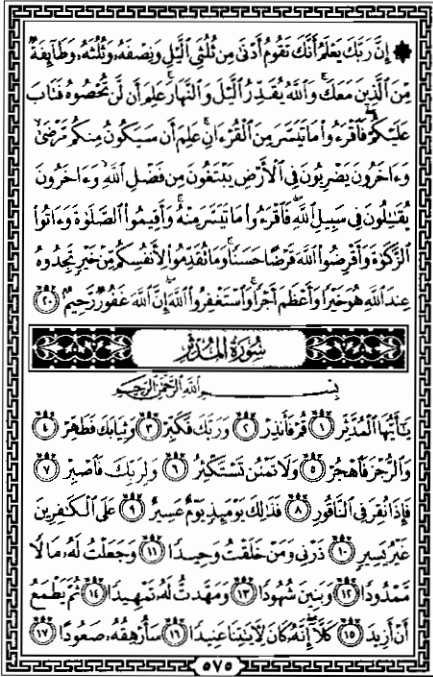 ۞ إِنَّ رَبَّكَ يَعْلَمُ أَنَّكَ تَقُومُ أَدْنَىٰ مِن ثُلُثَىِ ٱلَّيْلِ وَنِصْفَهُۥ وَثُلُثَهُۥ وَطَآئِفَةٌ
مِّنَ ٱلَّذِينَ مَعَكَ ۚ وَٱللَّهُ يُقَدِّرُ ٱلَّيْلَ وَٱلنَّهَارَ ۚ عَلِمَ أَن لَّن تُحْصُوهُ فَتَابَ
عَلَيْكُمْ ۖ فَٱقْرَءُوا۟ مَا تَيَسَّرَ مِنَ ٱلْقُرْءَانِ ۚ عَلِمَ أَن سَيَكُونُ مِنكُم مَّرْضَىٰ ۙ
وَءَاخَرُونَ يَضْرِبُونَ فِى ٱلْأَرْضِ يَبْتَغُونَ مِن فَضْلِ ٱللَّهِ ۙ وَءَاخَرُونَ
يُقَٰتِلُونَ فِى سَبِيلِ ٱللَّهِ ۖ فَٱقْرَءُوا۟ مَا تَيَسَّرَ مِنْهُ ۚ وَأَقِيمُوا۟ ٱلصَّلَوٰةَ وَءَاتُوا۟
ٱلزَّكَوٰةَ وَأَقْرِضُوا۟ ٱللَّهَ قَرْضًا حَسَنًا ۚ وَمَا تُقَدِّمُوا۟ لِأَنفُسِكُم مِّنْ خَيْرٍ تَجِدُوهُ
عِندَ ٱللَّهِ هُوَ خَيْرًا وَأَعْظَمَ أَجْرًا ۚ وَٱسْتَغْفِرُوا۟ ٱللَّهَ ۖ إِنَّ ٱللَّهَ غَفُورٌ رَّحِيمٌۢ ٢٠
سُورَةُ المُدَّثِّرِ
بِسْمِ ٱللَّهِ ٱلرَّحْمَٰنِ ٱلرَّحِيمِ
يَٰٓأَيُّهَا ٱلْمُدَّثِّرُ ١ قُمْ فَأَنذِرْ ٢ وَرَبَّكَ فَكَبِّرْ ٣ وَثِيَابَكَ فَطَهِّرْ ٤
وَٱلرُّجْزَ فَٱهْجُرْ ٥ وَلَا تَمْنُن تَسْتَكْثِرُ ٦ وَلِرَبِّكَ فَٱصْبِرْ ٧
فَإِذَا نُقِرَ فِى ٱلنَّاقُورِ ٨ فَذَٰلِكَ يَوْمَئِذٍ يَوْمٌ عَسِيرٌ ٩ عَلَى ٱلْكَٰفِرِينَ
غَيْرُ يَسِيرٍ ١٠ ذَرْنِى وَمَنْ خَلَقْتُ وَحِيدًا ١١ وَجَعَلْتُ لَهُۥ مَالًا
مَّمْدُودًا ١٢ وَبَنِينَ شُهُودًا ١٣ وَمَهَّدتُّ لَهُۥ تَمْهِيدًا ١٤ ثُمَّ يَطْمَعُ
أَنْ أَزِيدَ ١٥ كَلَّآ ۖ إِنَّهُۥ كَانَ لِءَايَٰتِنَا عَنِيدًا ١٦ سَأُرْهِقُهُۥ صَعُودًا ١٧
٥٧٥